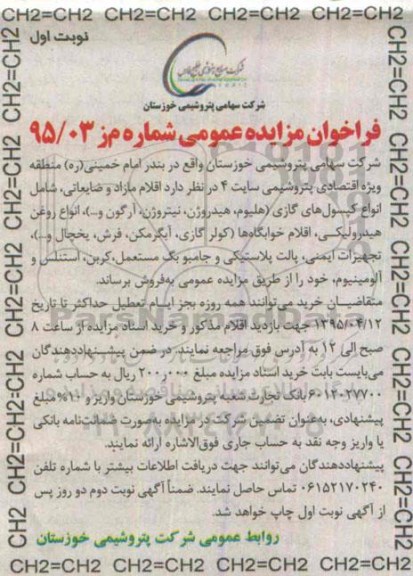 CH2=CH2 CH2=CH2 CH2=CH2 CH2=CH2 CH2=CH2
نوبت اول
شرکت سهامی پتروشیمی خوزستان
فراخوان مزایده عمومی شماره مز ۹۵/۰۳
شرکت سهامی پتروشیمی خوزستان واقع در بندر امام خمینی(ره) منطقه
ویژه اقتصادی پتروشیمی سایت ۴ در نظر دارد اقلام مازاد و ضایعاتی، شامل
انواع کپسول‌های گازی (هلیوم، هیدروژن، نیتروژن، آرگون و...)، انواع روغن
هیدرولیکی، اقلام خوابگاه‌ها (کولر گازی، آبگرمکن، فرش، یخچال و...)،
تجهیزات ایمنی، پالت پلاستیکی و جامبو بگ مستعمل، کربن، استنلس و
آلومینیوم، خود را از طریق مزایده عمومی به‌فروش برساند.
متقاضیان خرید می‌توانند همه روزه بجز ایام تعطیل حداکثر تا تاریخ
۱۳۹۵/۰۴/۱۲ جهت بازدید اقلام مذکور و خرید اسناد مزایده از ساعت ۸
صبح إلی ۱۲ به آدرس فوق مراجعه نمایند. در ضمن پیشنهاددهندگان
می‌بایست بابت خرید اسناد مزایده مبلغ ۲۰۰,۰۰۰ ریال به حساب شماره
۶۰۱۲۰۲۷۷۰۰ بانک تجارت شعبه پتروشیمی خوزستان واریز و ۱۰% مبلغ
پیشنهادی، به‌عنوان تضمین شرکت در مزایده به‌صورت ضمانت‌نامه بانکی
یا واریز وجه نقد به حساب جاری فوق‌الاشاره ارائه نمایند.
پیشنهاددهندگان می‌توانند جهت دریافت اطلاعات بیشتر با شماره تلفن
۰۶۱۵۲۱۷۰۲۴۰ تماس حاصل نمایند. ضمناً آگهی نوبت دوم دو روز پس
از آگهی نوبت اول چاپ خواهد شد.
روابط عمومی شرکت پتروشیمی خوزستان
CH2=CH2 CH2=CH2 CH2=CH2 CH2=CH2 CH2=CH2
ParsNamadData